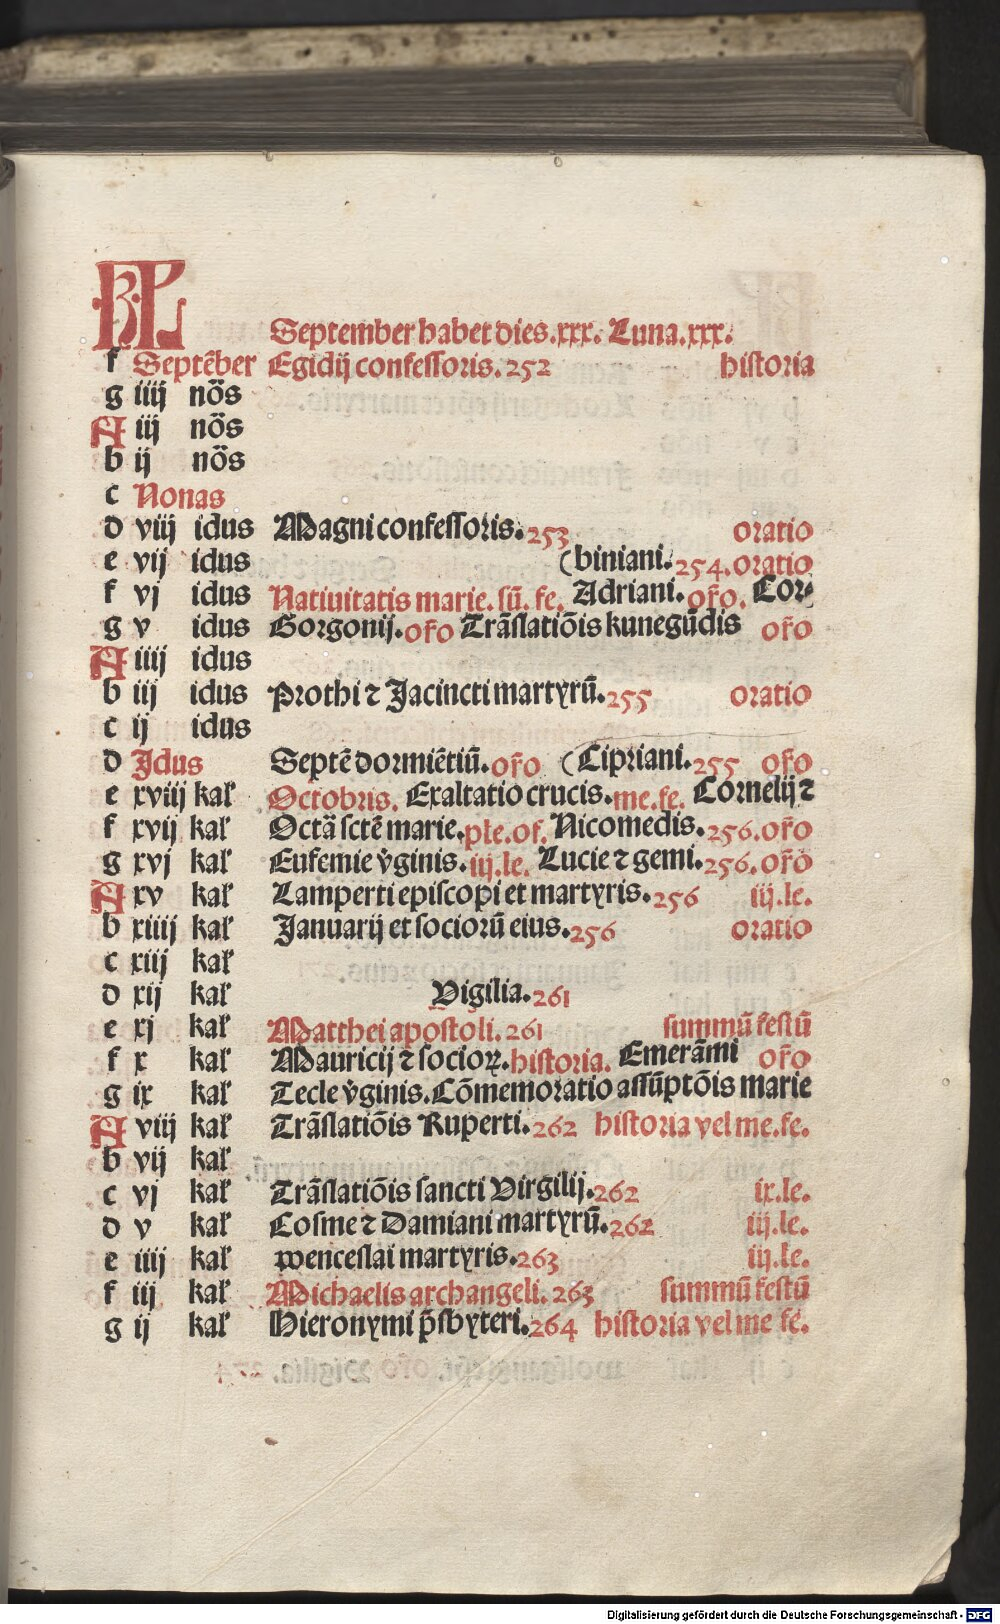 KL
September habet dies.xxx. Luna.xxx.
f Septẽber Egidij confessoris.252 historia
g iiij nõs
A iij nõs
b ij nõs
c Nonas
d viij idus Magni confessoris.253 oratio
e vij idus (biniani.254.oratio
f vj idus Natiuitatis marie.sũ.fe. Adriani.ořo. Cor-
g v idus Gorgonij.ořo Trãslatiõis kunegũdis ořo
A iiij idus
b iij idus Prothi ⁊ Jacincti martyrũ.255 oratio
c ij idus
d Idus Septẽ dormiẽtiũ.ořo (Cipriani.255 ořo
e xviij kal' Octobris. Exaltatio crucis.me.fe. Cornelij ⁊
f xvij kal' Octã sctẽ marie.ple.of. Nicomedis.256.ořo
g xvj kal' Eufemie v̓ginis.iij.le. Lucie ⁊ gemi.256.ořo
A xv kal' Lamperti episcopi et martyris.256 iij.le.
b xiiij kal' Januarij et sociorũ eius.256 oratio
c xiij kal'
d xij kal' Vigilia.261
e xj kal' Matthei apostoli.261 summũ festũ
f x kal' Mauricij ⁊ socioꝝ.historia. Emerãmi ořo
g ix kal' Tecle v̓ginis.Cõmemoratio assũptõis marie
A viij kal' Trãslatiõis Ruperti.262 historia vel me.fe.
b vij kal'
c vj kal' Trãslatiõis sancti Virgilij.262 ix.le.
d v kal' Cosme ⁊ Damiani martyrũ.262 iij.le.
e iiij kal' wenceslai martyris.263 iij.le.
f iij kal' Michaelis archangeli.263 summũ festũ
g ij kal' Hieronymi p̃sbyteri.264 historia vel me fe.
Digitalisierung gefördert durch die Deutsche Forschungsgemeinschaft - DFG